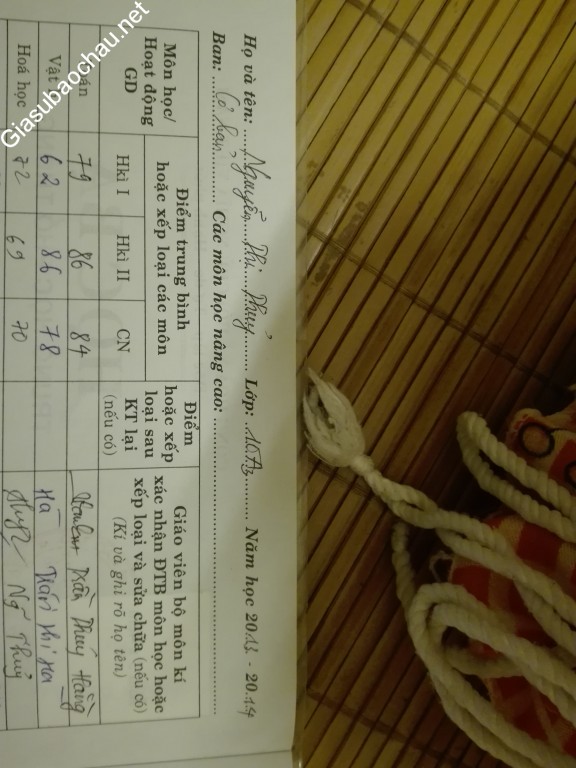 Giasubaochau.net
Họ và tên: Nguyễn Thị Thủy Lớp: 10A3 Năm học 2013 - 2014
Ban: Cơ bản Các môn học nâng cao:
Môn học/ Hoạt động GD
Điểm trung bình hoặc xếp loại các môn
Điểm hoặc xếp loại sau KT lại (nếu có)
Giáo viên bộ môn kí xác nhận ĐTB môn học hoặc xếp loại và sửa chữa (nếu có) (Kí và ghi rõ họ tên)
Hkì I Hkì II CN
79 86 84 Trần Thúy Hằng
Vật 62 86 78 Hà
Hoá học 72 69 70 Ng Thủy